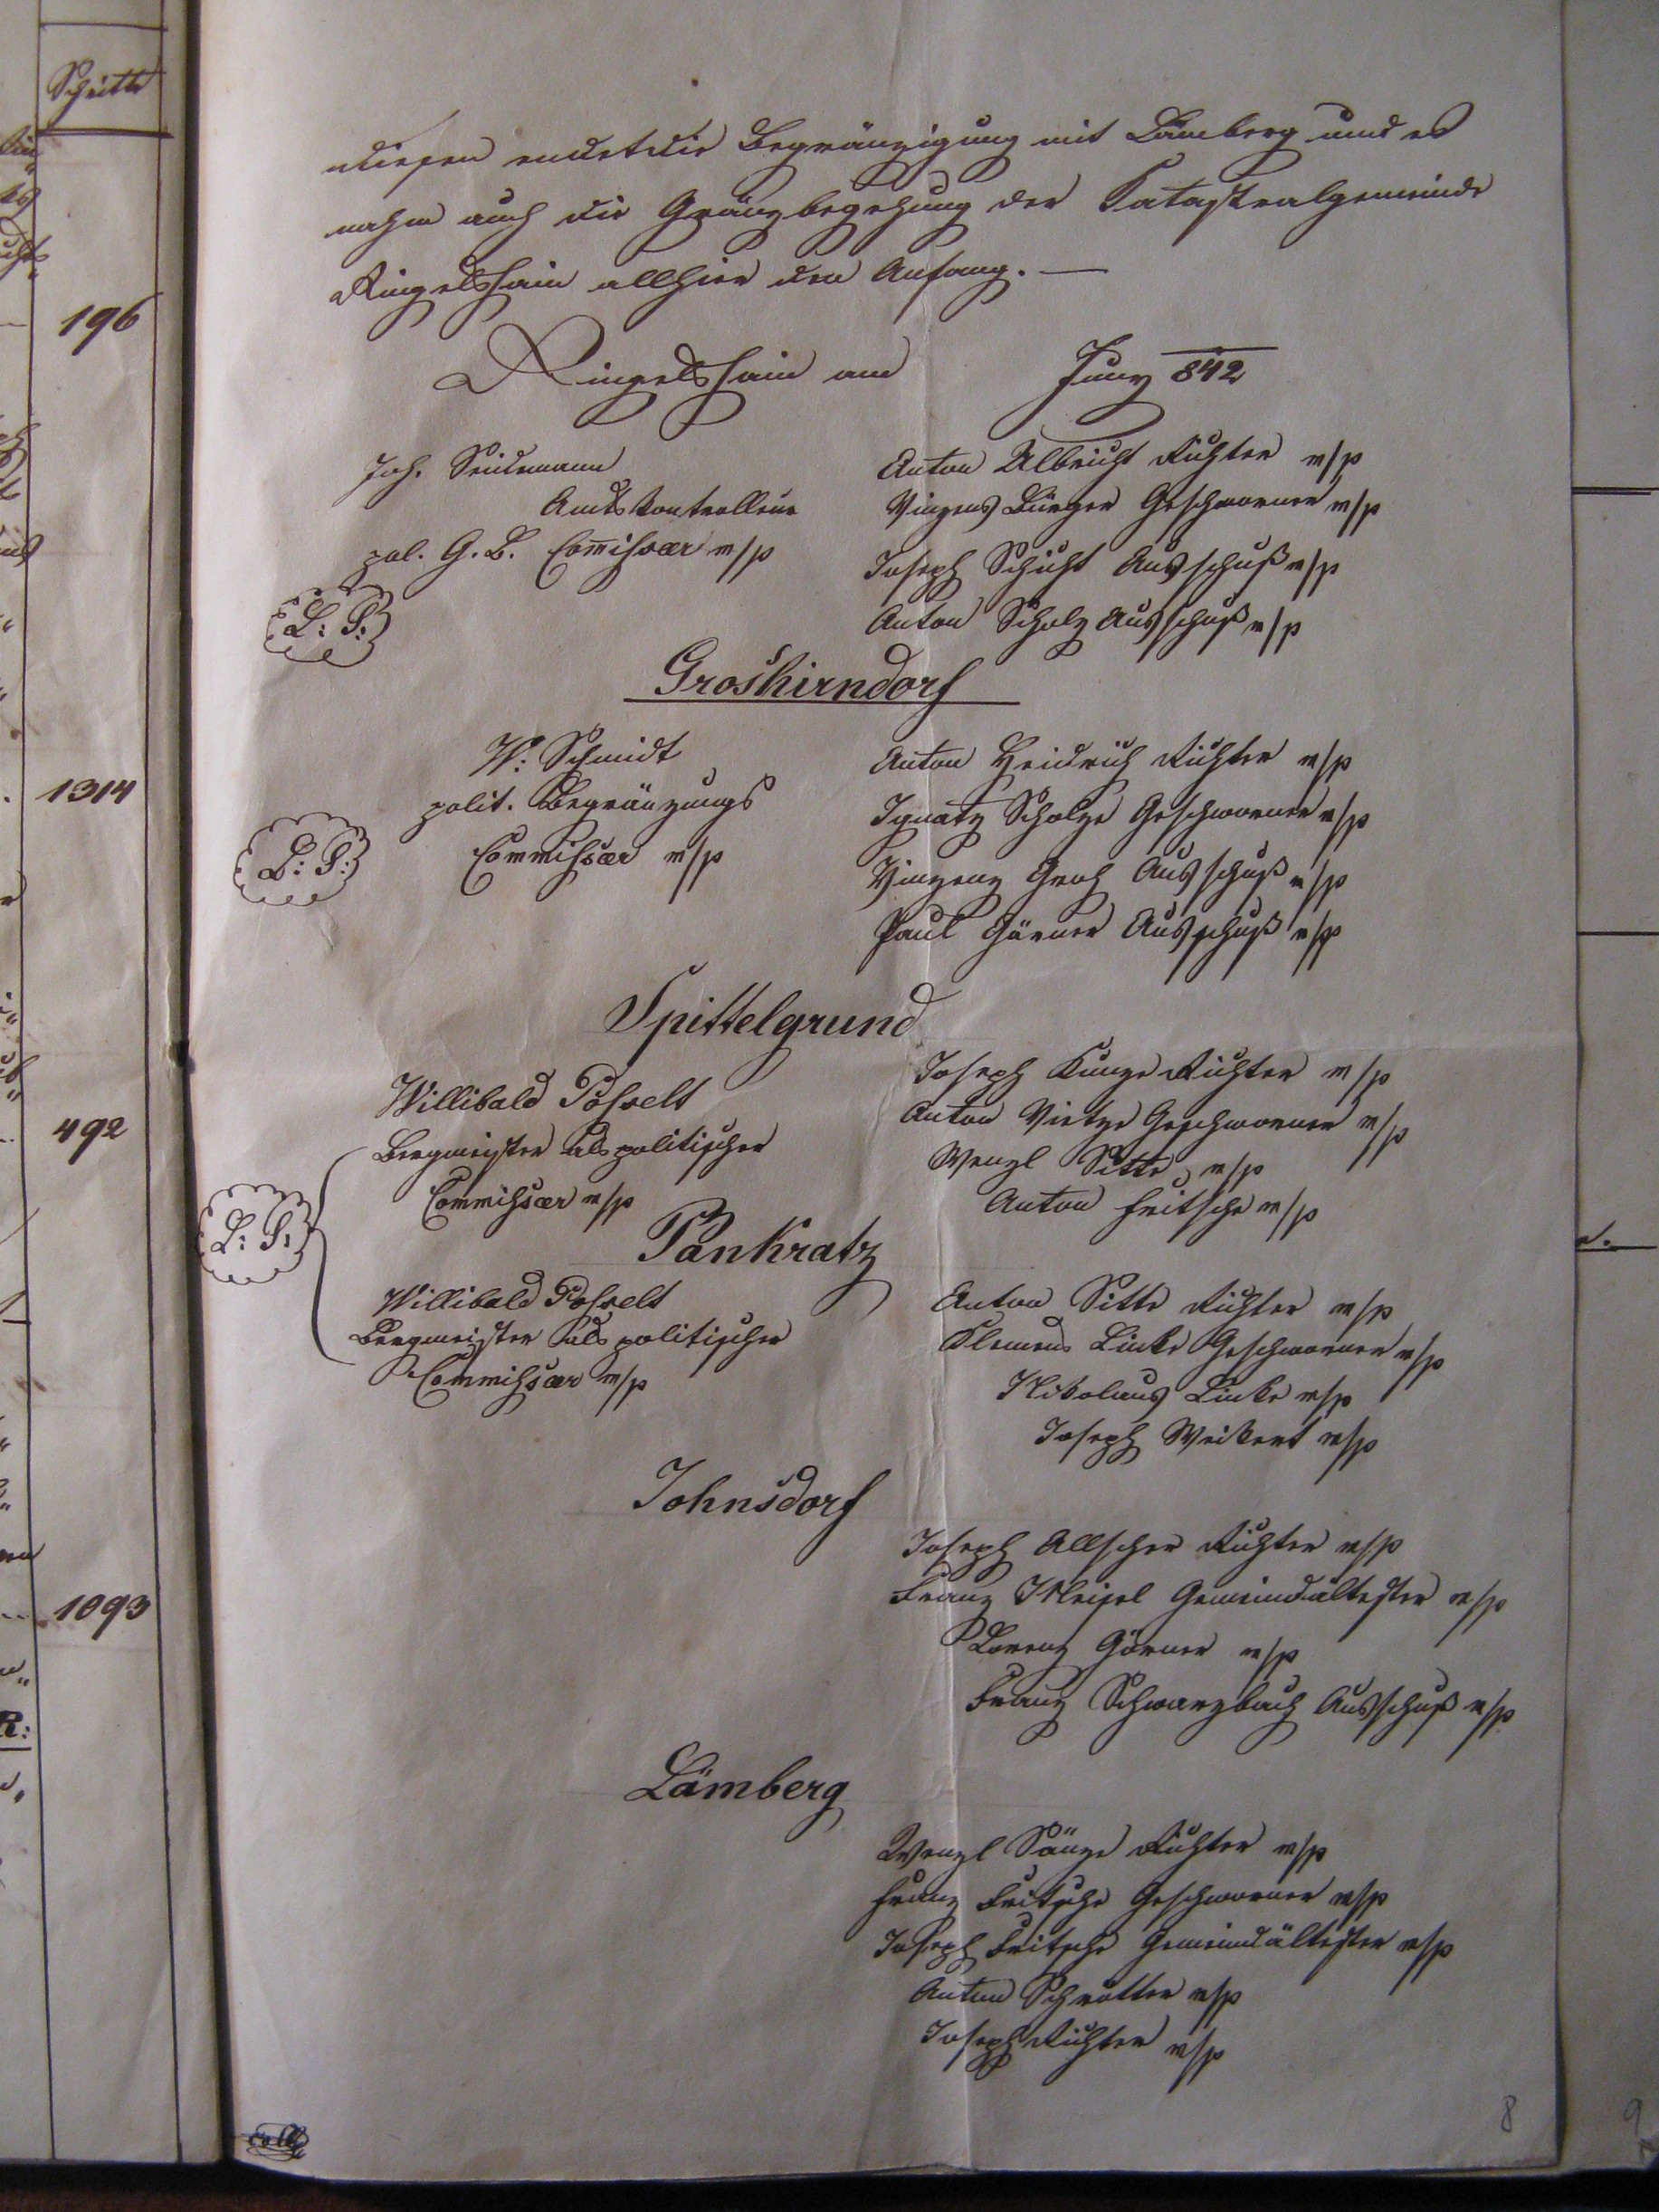 Schritte
196
1314
492
1093
R:
diesen endet die Begränzigung mit Lämberg und es
nahm auch die Gränzbegehung der Katastralgemeinde
Ringelshain allhier den Anfang. —
Ringelshain am Juny 842
Joh. Seidemann
Amtskontrolleur
pol. G. B. Commissaer m/p
L: S:
Anton Ulbricht Richter m/p
Vinzens Bürger Geschworner m/p
Joseph Schicht Ausschuß m/p
Anton Scholz Ausschuß m/p
Groshirndorf
W: Schmidt
polit. Begränzungs
Commissaer m/p
L: S:
Anton Heidrich Richter m/p
Ignatz Scholze Geschworner m/p
Vinzenz Groh Ausschuß m/p
Paul Görner Ausschuß m/p
Spittelgrund
Willibald Posselt
Bergmeister als politischer
Commissaer m/p
L: S:
Joseph Kunze Richter m/p
Anton Vietze Geschworner m/p
Wenzl Sitte m/p
Anton Fritsche m/p
Pankratz
Willibald Posselt
Bergmeister als politischer
Commissaer m/p
Anton Sitte Richter m/p
Klemens Linke Geschworner m/p
Nikolaus Linke m/p
Joseph Weikert m/p
Johnsdorf
Joseph Allscher Richter m/p
Franz Neisel Gemeindältester m/p
Lorenz Görner m/p
Franz Schwarzbach Ausschuß m/p
Lämberg
Wenzl Sänze Richter m/p
Franz Fritsche Geschworner m/p
Joseph Fritsche Gemeindältester m/p
Anton Schrotter m/p
Joseph Richter m/p
8
9